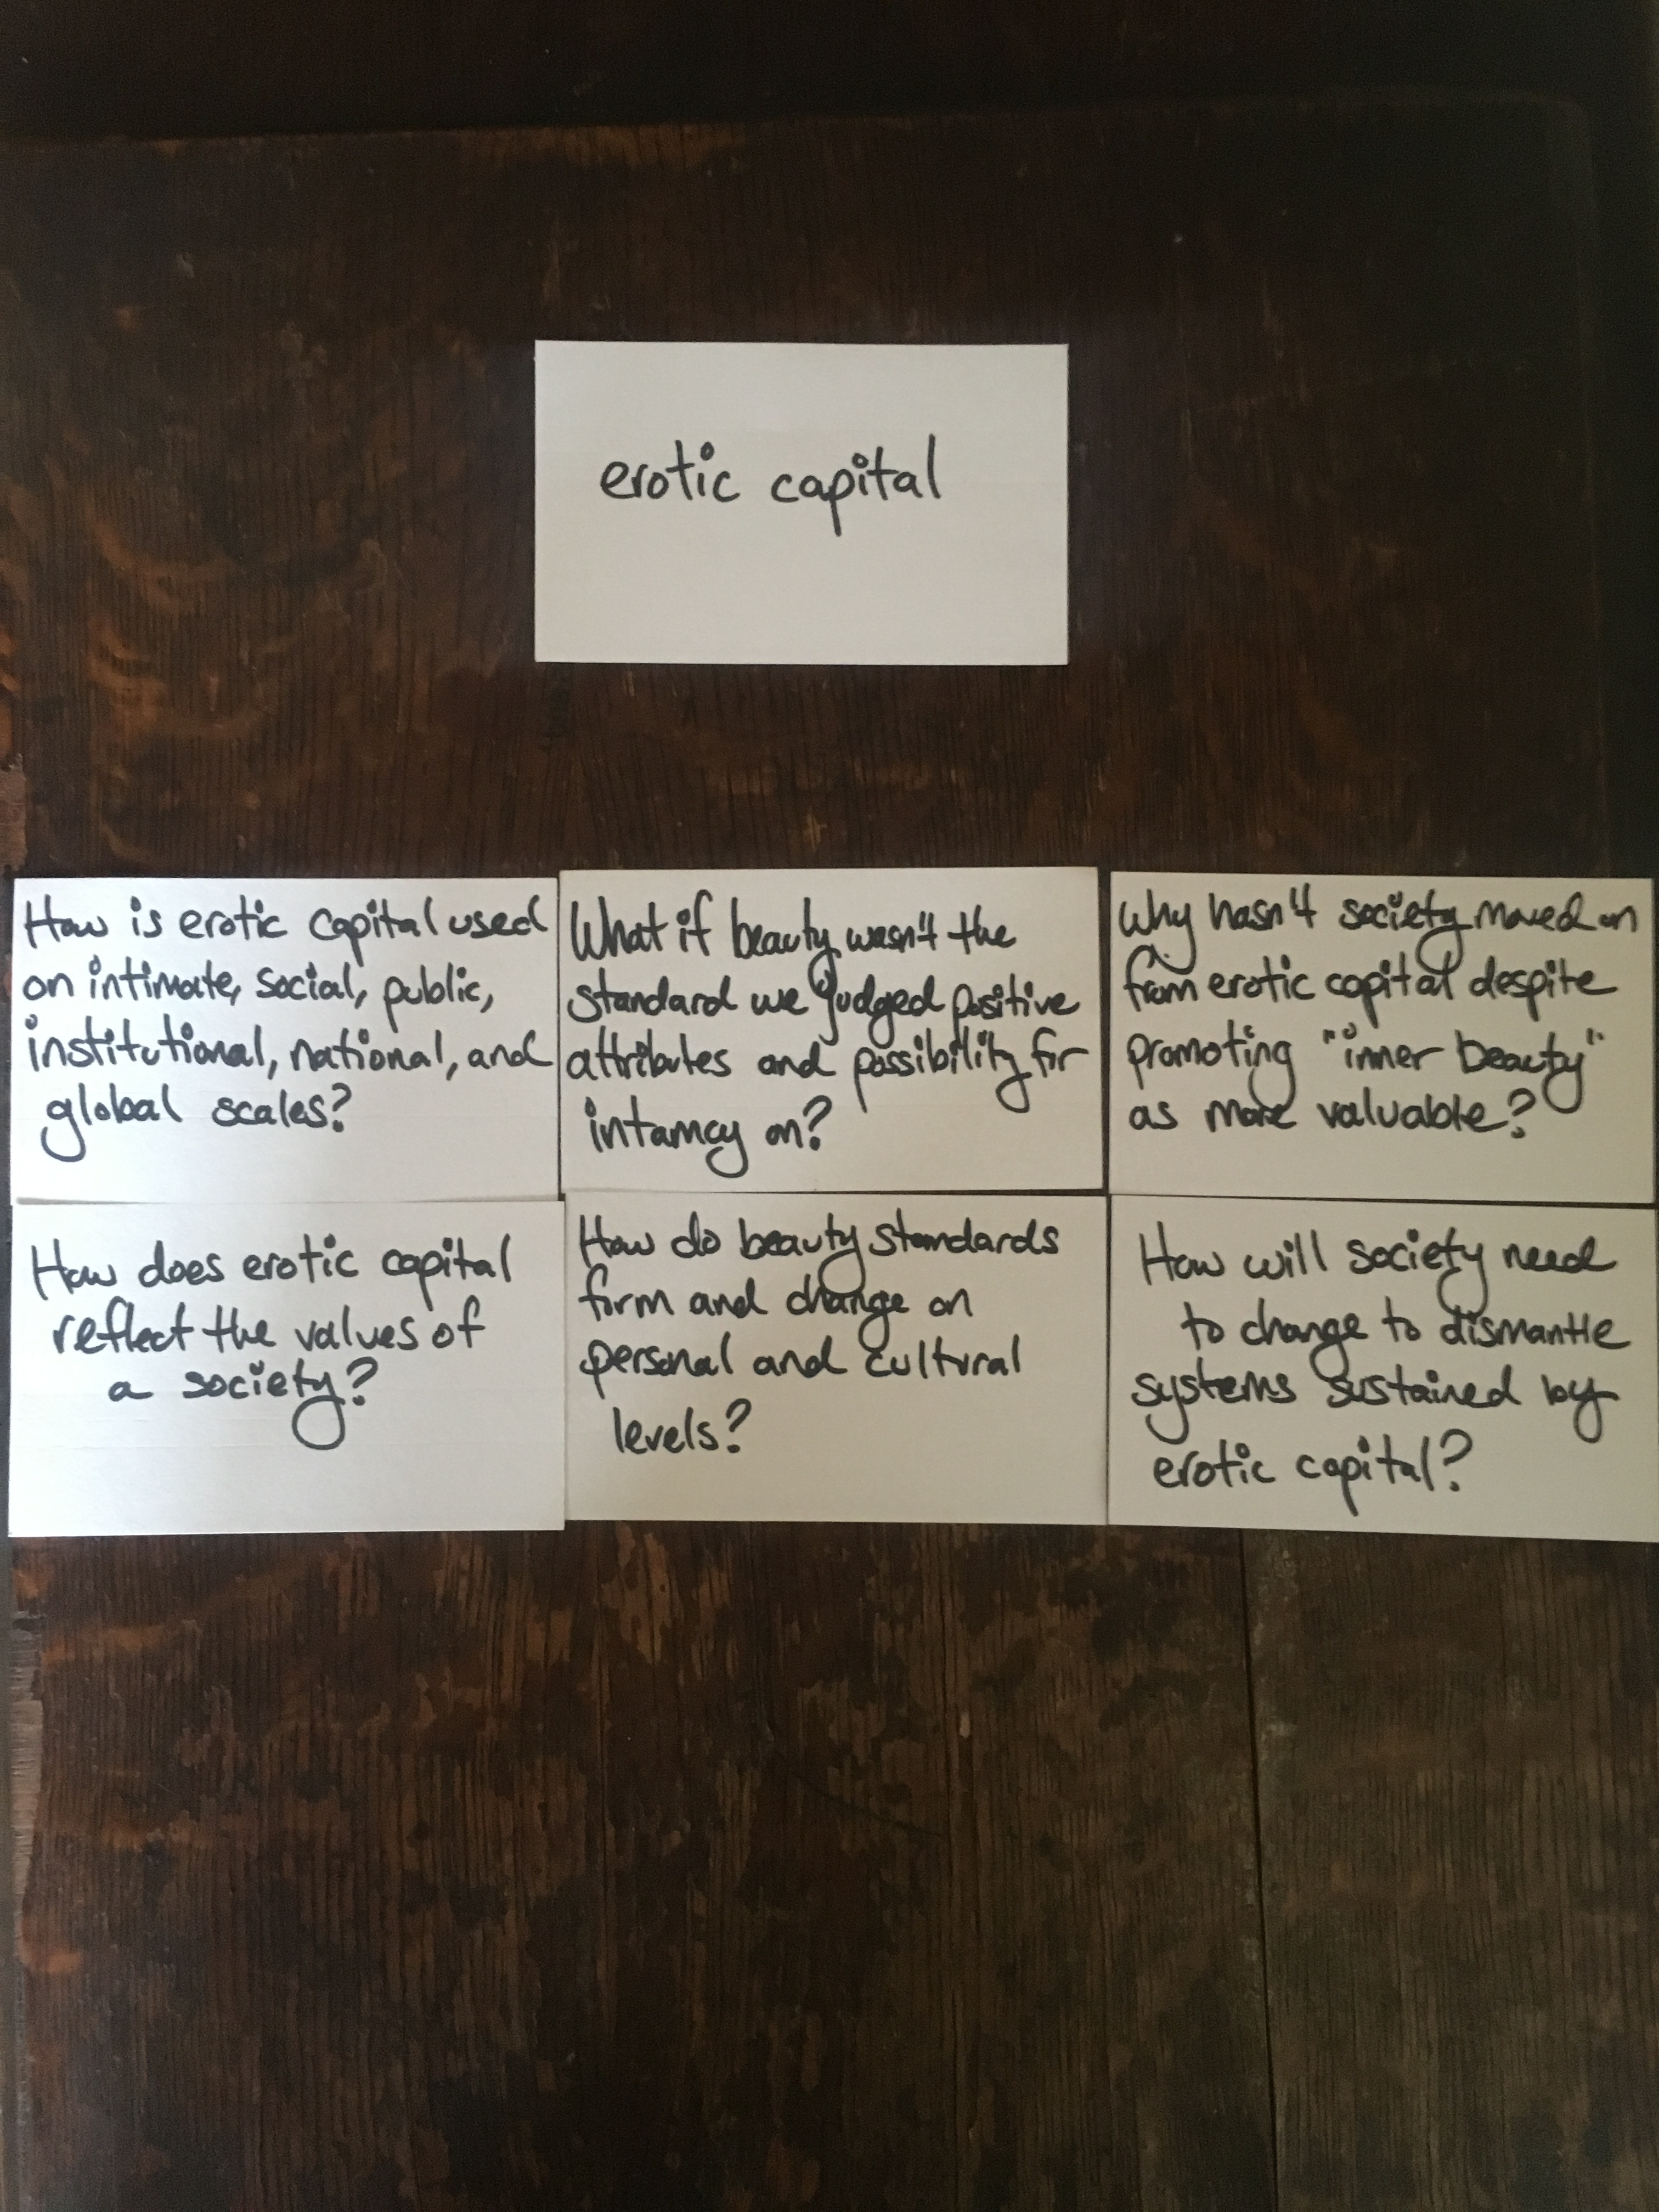 erotic capital
How is erotic capital used
on intimate, social, public,
institutional, national, and
global scales?
What if beauty wasn't the
standard we judged positive
attributes and possibility for
intamcy on?
Why hasn't society moved on
from erotic capital despite
promoting "inner beauty"
as more valuable?
How does erotic capital
reflect the values of
a society?
How do beauty standards
form and change on
personal and cultural
levels?
How will society need
to change to dismantle
systems sustained by
erotic capital?